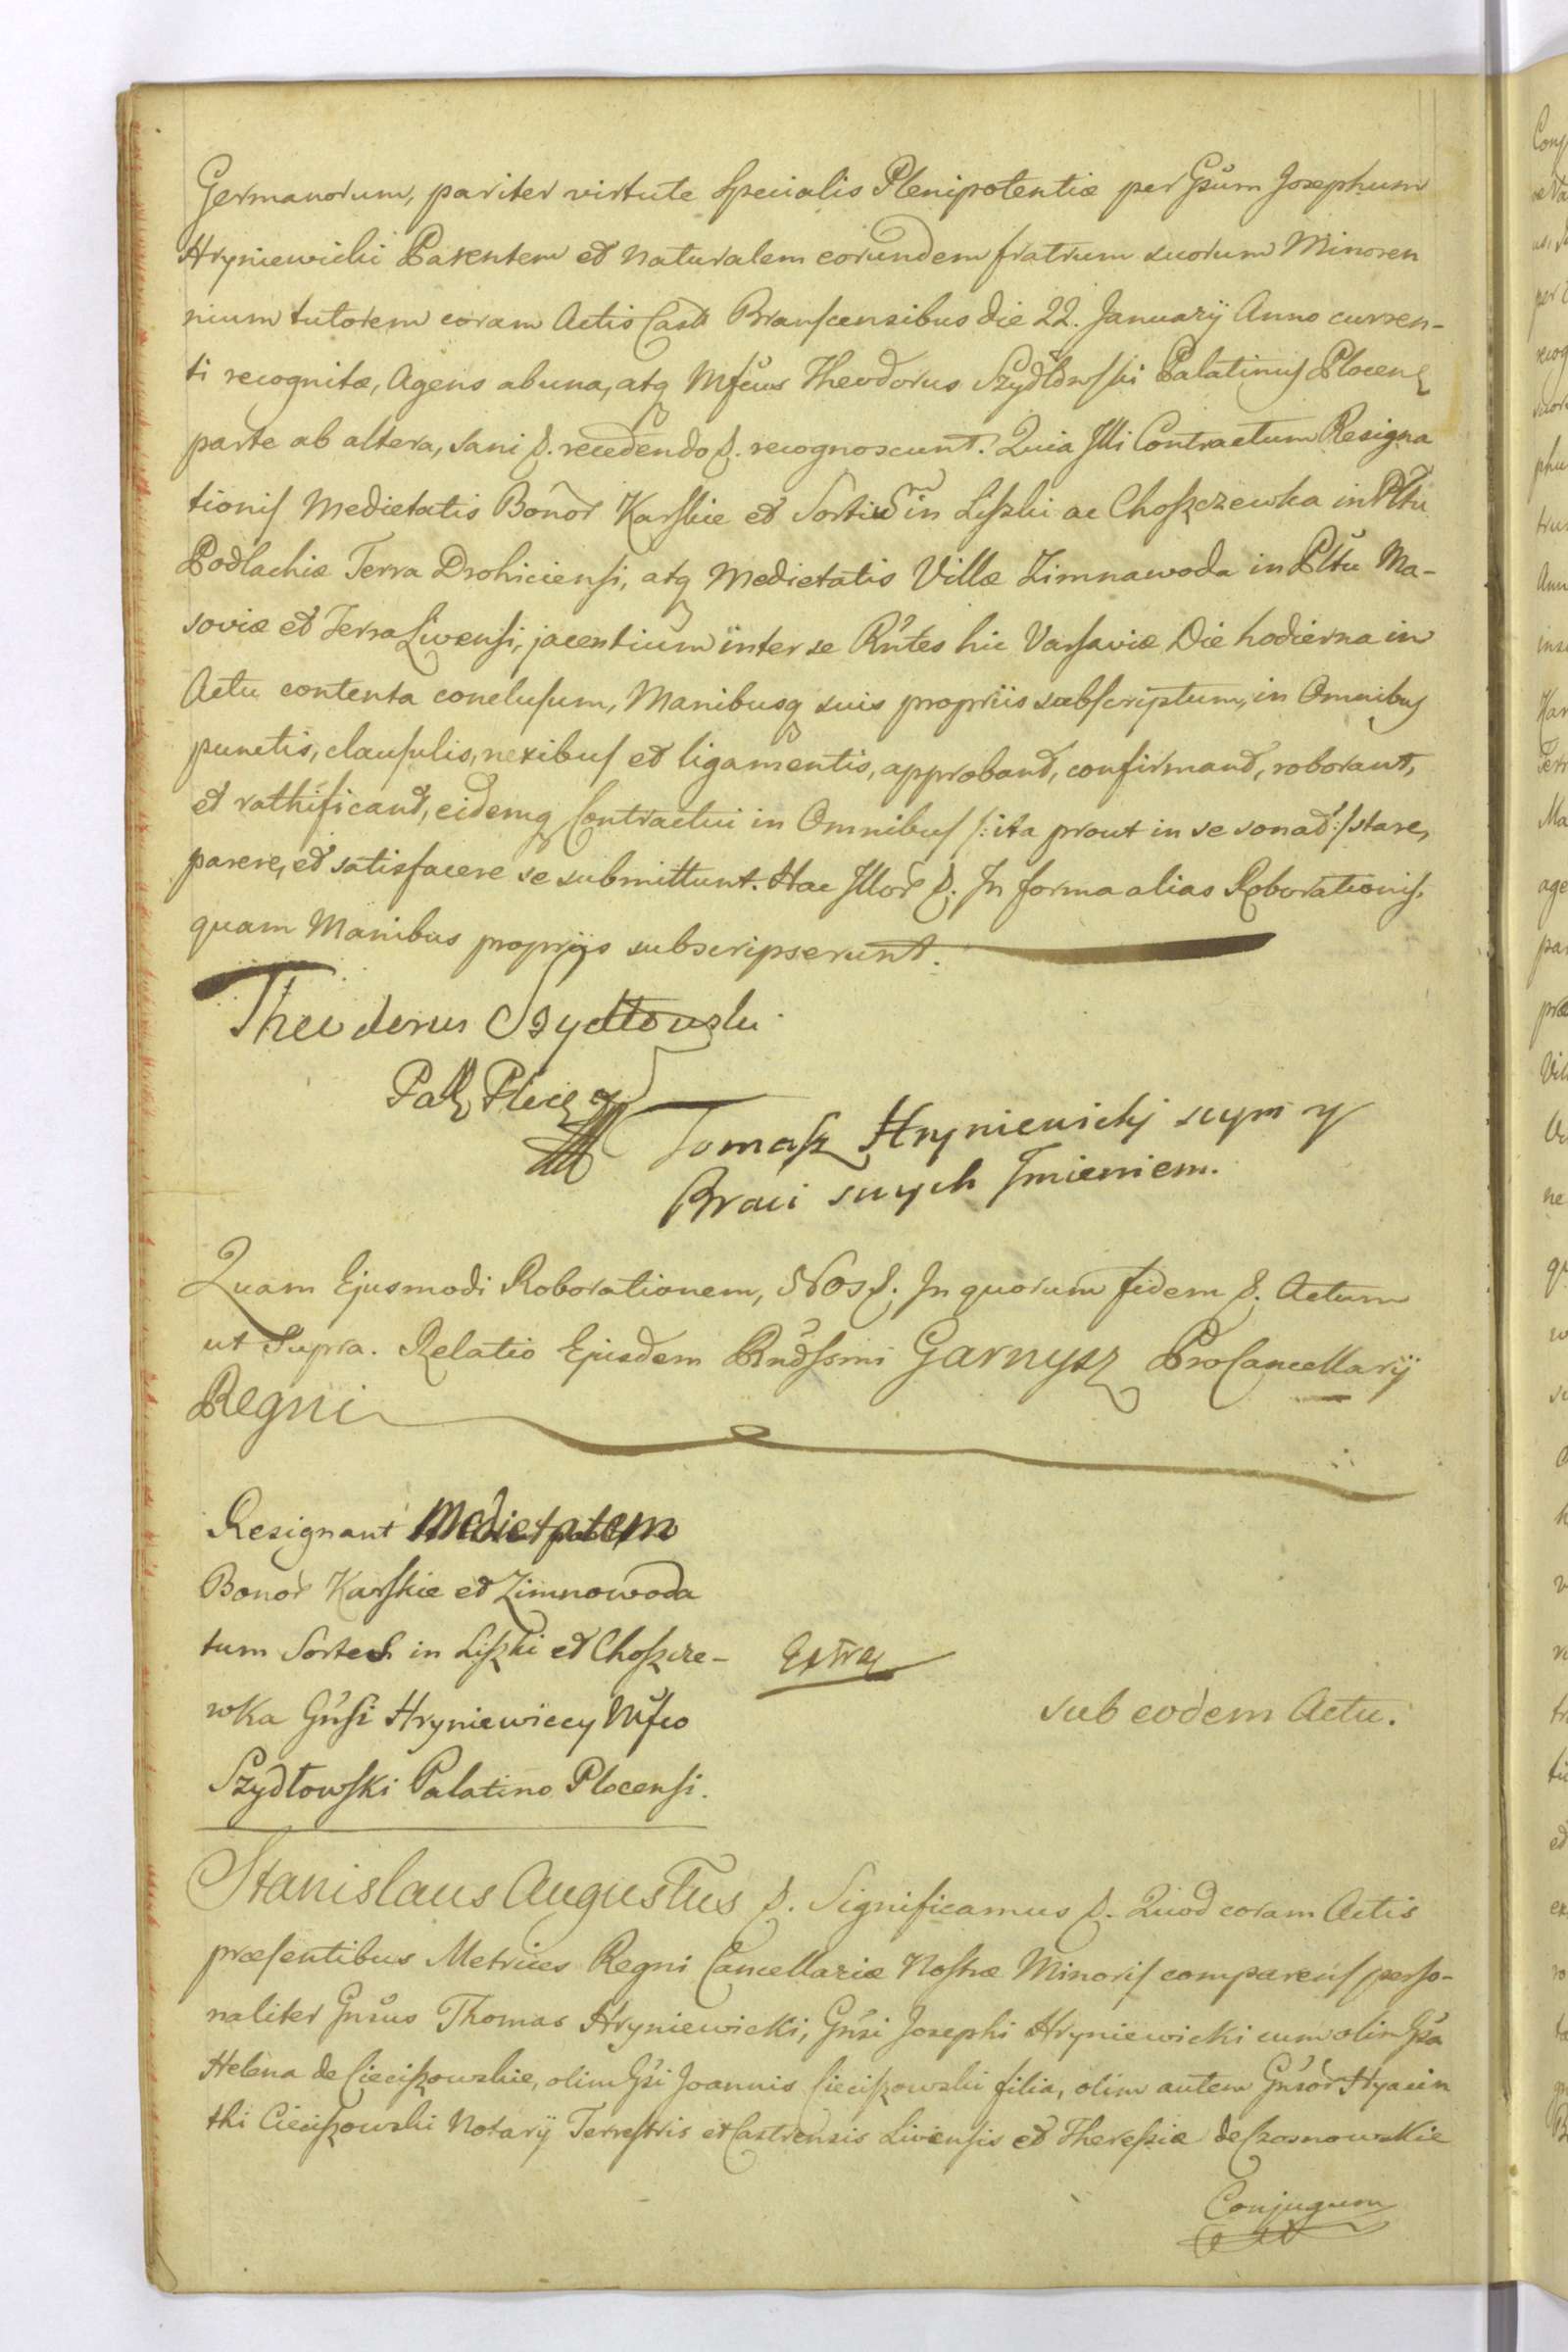 Germanorum, pariter virtute specialis Plenipotentiæ per Gsũm Josephum
Hryniewicki Parentem et naturalem eorundem fratrum suorum Minoren
nium tutorem coram Actis Castr Branscensibus die 22. Januarÿ Anno curren-
ti recognitæ, Agens ab una, atq Mfcus Theodorus Szydłowski Palatinus Plocens
parte ab altera, sani &. recedendo &. recognoscunt. Quia Illi Contractum Resigna
tionis Medietatis Bonor Karskie et Sortium in Liszki ac Choszczewka in Pltũ
Podlachiæ Terra Drohiciensi, atq Medietatis Villæ Zimnawoda in Pltũ Ma-
soviæ et Terra Livensi, jacentium inter se Rñtes hic Varsaviæ Die hodierna in
Actu contenta conclusum, Manibusq suis propriis subscriptum, in Omnibus
punctis, clausulis, nexibus et ligamentis, approbant, confirmant, roborant,
et rathificant, eidemq Contractui in Omnibus /: ita prout in se sonat :/ stare,
parere, et satisfacere se submittunt. Hac Illor &. In forma alias Roborationis,
quam Manibus propriis subscripserunt.
Theodorus Szydłowski
Pal Ploc
Tomasz Hryniewickj swym y
Braci swych Jmieniem.
Quam Ejusmodi Roborationem, Nos &. In quorum fidem &. Actum
ut Supra. Relatio Ejusdem Rndssmi Garnysz ProCancellarÿ
Regni
Resignant Medietatem
Bonor Karskie et Zimnowoda
tum Sortes in Liszki et Choszcze-
wka Gñsi Hryniewiccy Mfco
Szydłowski Palatino Plocensi.
Extra
sub eodem Actu.
Stanislaus Augustus &. Significamus &. Quod coram Actis
præsentibus Metrices Regni Cancellariæ Nostræ Minoris comparens perso-
naliter Gnsus Thomas Hryniewicki, Gñsi Josephi Hryniewicki cum olim Gsa
Helena de Cieciszowskie, olim Gsi Joannis Cieciszowski filia, olim autem Gnsor Hyacin
thi Cieciszowski Notarÿ Terrestris et Castrensis Livensis et Theresiæ de Czosnowskie
Conjugum